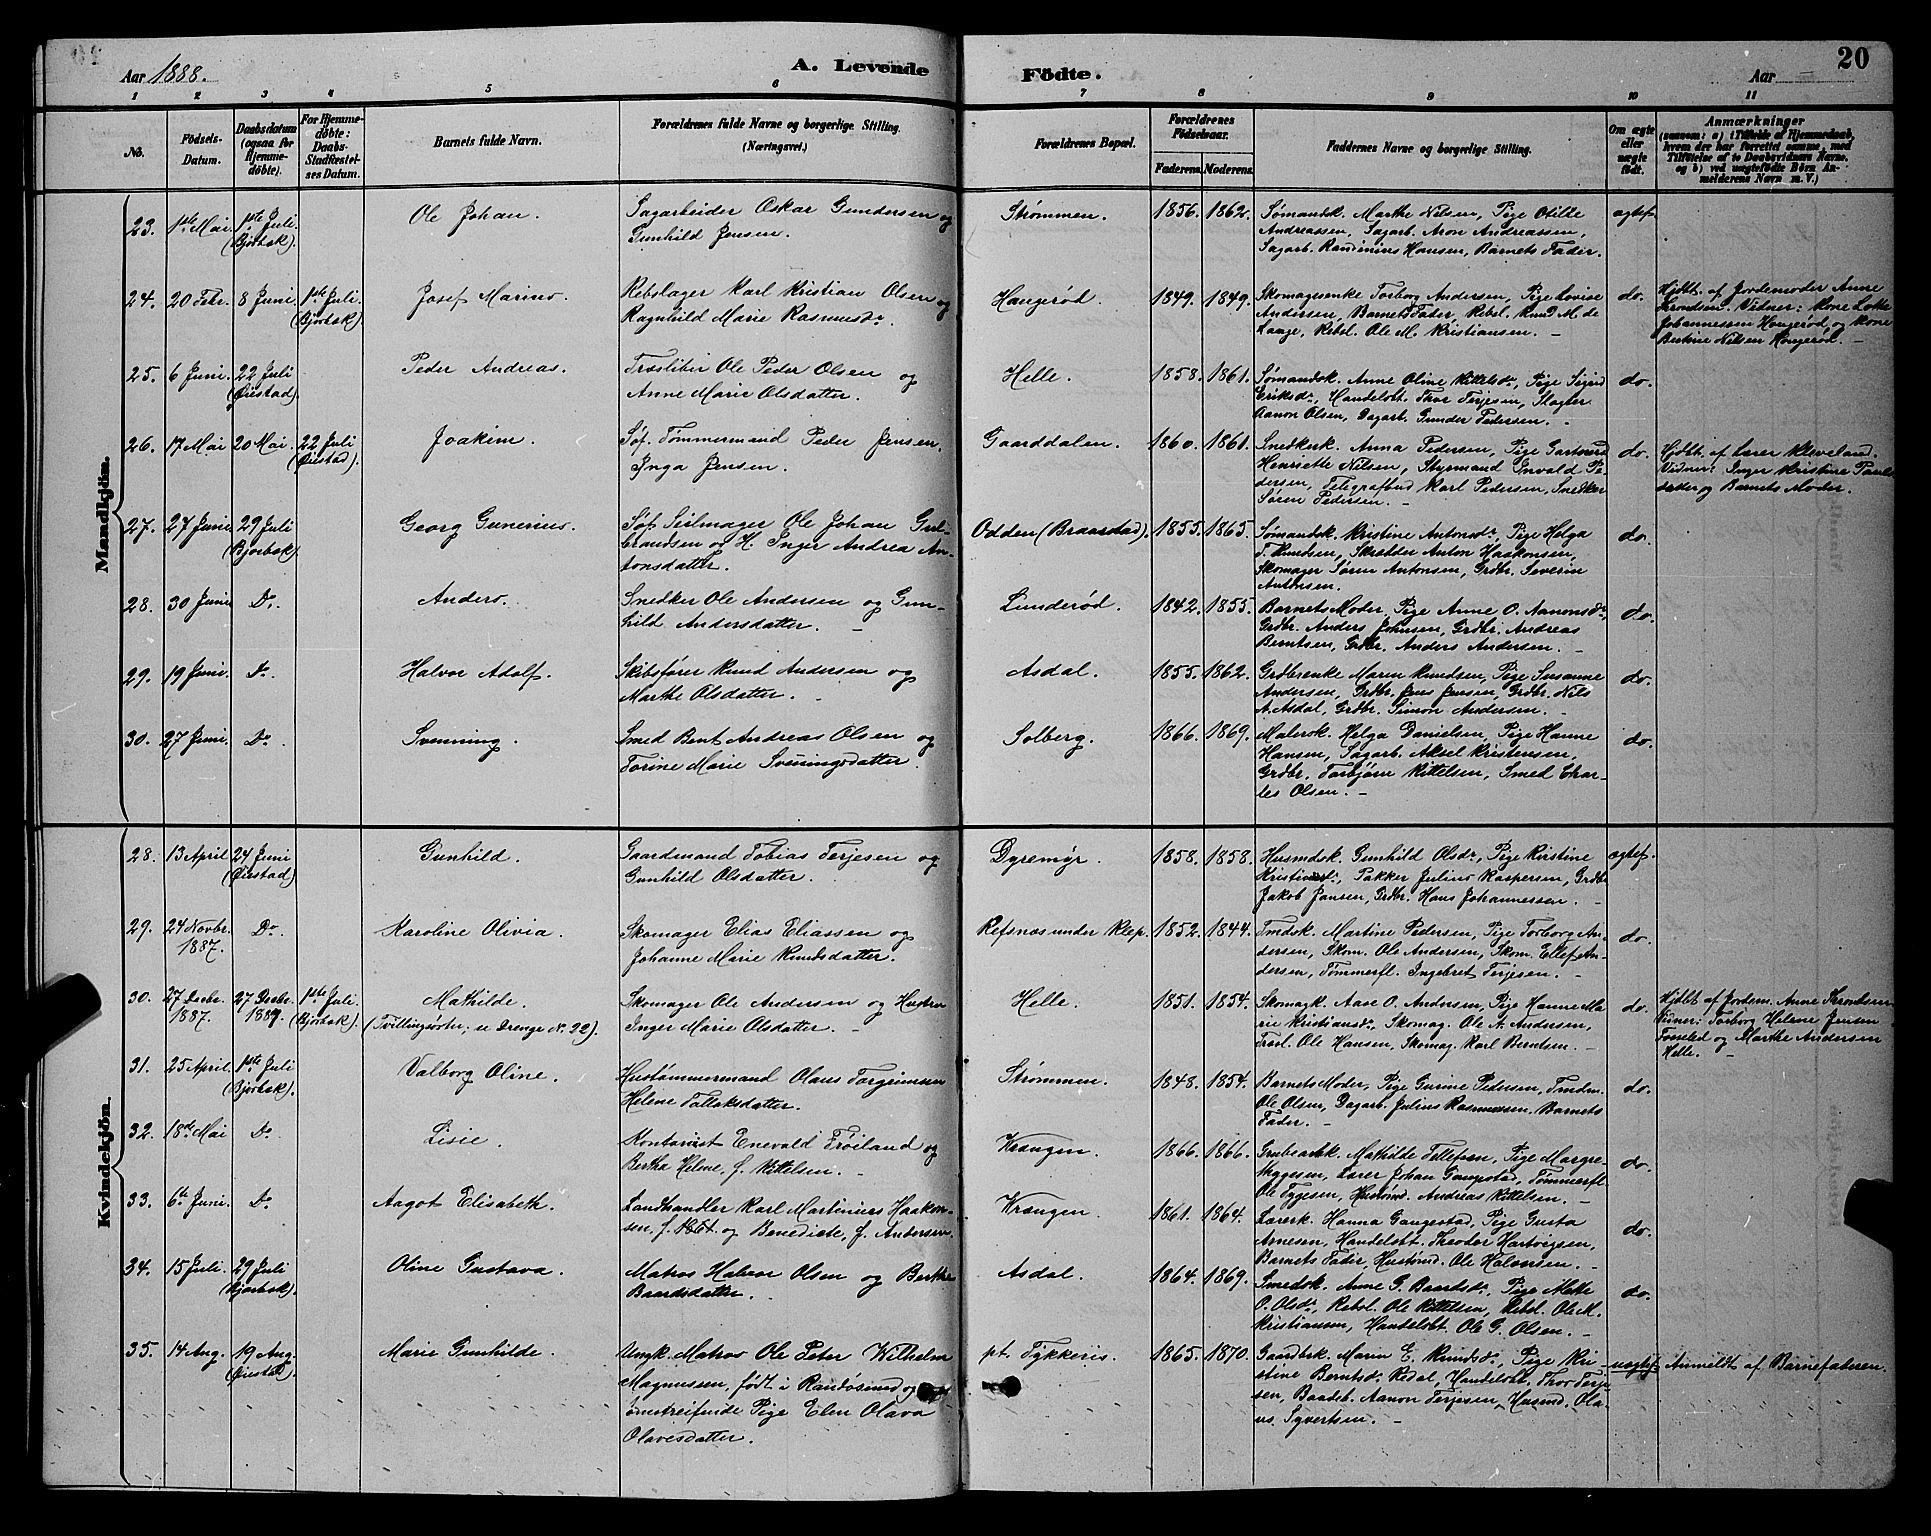 Aar 1888.
A. Levende Födte.
Aar
20
1 2 3 4 5 6 7 8 9 10 11
No.
Födsels-Datum.
Daabsdatum (ogsaa for Hjemmedöbte).
For Hjemmedöbte: Daabs-Stadfæstelses Datum.
Barnets fulde Navn.
Forældrenes fulde Navne og borgerlige Stilling. (Næringsvei.)
Forældrenes Bopæl.
Forældrenes Födselsaar.
Faderens. Moderens.
Faddernes Navne og borgerlige Stilling.
Om ægte eller uægte födt.
Anmærkninger
(saasom: a) i Tilfælde af Hjemmedaab, hvem der har forrettet samme, med Tilföielse af to Daabsvidners Navne, og b) ved uægtefödte Börn Anmelderens Navn m. V.)
Mandkjön.
23. 1ste Mai 1ste Juli (Bjorbæk). Ole Johan. Sagarbeider Oskar Gundersen og Gunhild Jensen. Strømmen. 1856. 1862. Sømandsk. Marthe Nilsen, Pige Otilde
Andreassen, Sagarb. Aron Andreassen,
Sagarb. Randinius Hansen, Barnets Fader. ægtef.
24. 20 Febr. 8 Juni 1ste Juli (Bjorbæk) Josef Marinus. Rebslager Karl Kristian Olsen og Ragnhild Marie Rasmusdr. Haugerød. 1849. 1849. Skomagerenke Torborg Andersen, Pige Lovise
Andersen, Barnets Fader, Rebsl. Knud M. de
Lange, Rebsl. Ole M. Kristiansen. do. Hjdbt. af Jordemoder Anne
Trondsen. Vidner: Kone Lotte
Johannessen Haugerød og Kone
Butine Nilsen Haugerød.
25. 6 Juni. 22 Juli (Øiestad). Peder Andreas. Træsliber Ole Peder Olsen og Anne Marie Olsdatter. Helle. 1858. 1861. Sømandsk. Anne Oline Kittelsdr., Pige Sigrid
Eriksdr., Handelsbt. Thor Terjesen, Slagter
Aanon Olsen, Dagarb. Gunder Pedersen. do.
26. 17 Mai 20 Mai. 22 Juli (Øiestad). Joakim. Søf. Tømmermand Peder Jensen, Inga Jensen. Gaarddalen. 1860. 1861. Snedkerk. Anna Pedersen, Pige
Henriette Nilsen, Styrmand Envald Pedersen, Telegrafbud Karl Pedersen, Snedker
Søren Pedersen. do. Hjdbt. af Lærer Kleveland.
Vidner: Inger Kristine Paulsdatter og Barnets Moder.
27. 27 Juni 29 Juli (Bjorbæk) Georg Gunerius. Søf. Seilmager Ole Johan Gulbrandsen og H. Inger Andrea Antonsdatter. Odden (Braastad). 1855. 1865. Sømandsk. Kristine Antonsdr., Pige Helga
T. Knudsen, Skrædder Anton Haakonsen,
Skomager Søren Antonsen, Grdbr. Severin
Antonsen. do.
28. 30 Juni Do. Anders. Snedker Ole Andersen og Gunhild Andersdatter. Lunderød. 1842. 1855. Barnets Moder, Pige Anne O. Aanonsdr.,
Grdbr. Anders Johnsen, Grdbr. Andreas
Berntsen, Grdbr. Anders Andersen. do.
29. 19 Juni Do. Halvor Adolf. Skibsfører Knud Andersen og Marthe Olsdatter. Asdal. 1855. 1862. Grdbrenke Maren Knudsen, Pige Susanne
Andersen, Grdbr. Jens Jensen, Grdbr. Nils
A. Asdal, Grdbr. Simon Andersen. do.
30. 27 Juni. Do. Svenning. Smed Bent Andreas Olsen og Torine Marie Sveningsdatter. Solberg. 1866. 1869. Malersk. Helga Danielsen, Pige Hanne
Hansen, Sagarb. Aksel Kristensen,
Grdbr. Torbjørn Kittelsen, Smed Charles Olsen. do.
Kvindekjön.
28. 13 April 24 Juni (Øiestad) Gunhild. Gaardmand Tobias Terjesen og Gunhild Olsdatter. Dyremyr. 1858. 1858. Husmdsk. Gunhild Olsdr., Pige Kirstine
Kristinesdr., Pakker Julius Kaspersen, Grdbr.
Jakob Jansen, Grdbr. Hans Johannessen. ægtef.
29. 24 Novbr. 1887. Do. Karoline Olivia. Skomager Elias Eliassen og Johanne Marie Knudsdatter. Refsnæs under Klep. 1852. 1844. Tmdsk. Martine Pedersen, Pige Torborg Andersen, Skom. Ole Andersen, Skom. Ellef Andersen, Tømmerfl. Ingebret Terjesen. do.
30. 27 Decbr. 1887. 27 Decbr. 1887. 1ste Juli (Bjorbæk). Mathilde. (Tvillingsøster; se Drenge No. 22). Skomager Ole Andersen og Hustru Inger Marie Olsdatter. Helle. 1851. 1854. Skomagk. Aase O. Andersen, Pige Hanne Marie Kristiansdr., Skomag. Ole A. Andersen,
Træsl. Ole Hansen, Skomag. Karl Berntsen. do. Hjdbt af Jordem. Anne Trondsen
Vidner: Torborg Helene Jensen
Tomsted og Marthe Andersen
Helle.
31. 25 April 1ste Juli (Bjorbæk). Valborg Oline. Hustømmermand Olaus Torgrimsen Helene Tallaksdatter. Strømmen. 1848. 1854. Barnets Moder, Pige Gurine Pedersen, Tmdm.
Ole Olsen, Dagarb. Julius Rasmussen, Barnets
Fader. do.
32. 18de Mai Do. Lisie. Kontorist Enevald Frøiland og Bertha Helene, f. Kittelsen. Vrængen. 1866. 1866. Mathilde Tellefsen, Pige Margrethe
Lærer Johan Gaugestad, Tømmerfl.
Ole Tygesen, Hustømd. Andreas Kittelsen. do.
33. 6te Juni. Do. Aagot Elisabeth. Landhandler Karl Martinius Haakonsen, f. 1861. og Benedicte, f. Andersen. Vrængen. 1861. 1864. Lærerk. Hanna Gaugestad, Pige Gusta
Arnesen, Handelsbt. Theodor Hartvigsen,
Barnets Fader, Hustømd. Ole Halvorsen. do.
34. 15 Juli. 29 Juli (Bjorbæk). Oline Gustava. Matros Halvor Olsen og Berthe Baardsdatter. Asdal. 1864. 1869. Smedsk. Anne G. Baardsdr., Pige Mette
O. Olsdr., Rebsl. Ole Kittelsen, Rebsl. Ole M.
Kristiansen, Handelsbt. Ole G. Olsen. do.
35. 14 Aug. 19 Aug. (Øiestad). Marie Gunhilde. Ungk. Matros Ole Peter Wilhelm Magnussen, født i Randøsund og omstreifende Pige Elen Olava Olavesdatter. pt. Tykkeris. 1865. 1870. Gaardbrk. Maren E. Knudsdr., Pige Kristine Berntsdr. Redal, Handelsbt. Thor Terjesen, Baadsb. Aanon Terjesen, Husmd. Olaus Syvertsen. uægtef. Anmeldt af Barnefaderen.